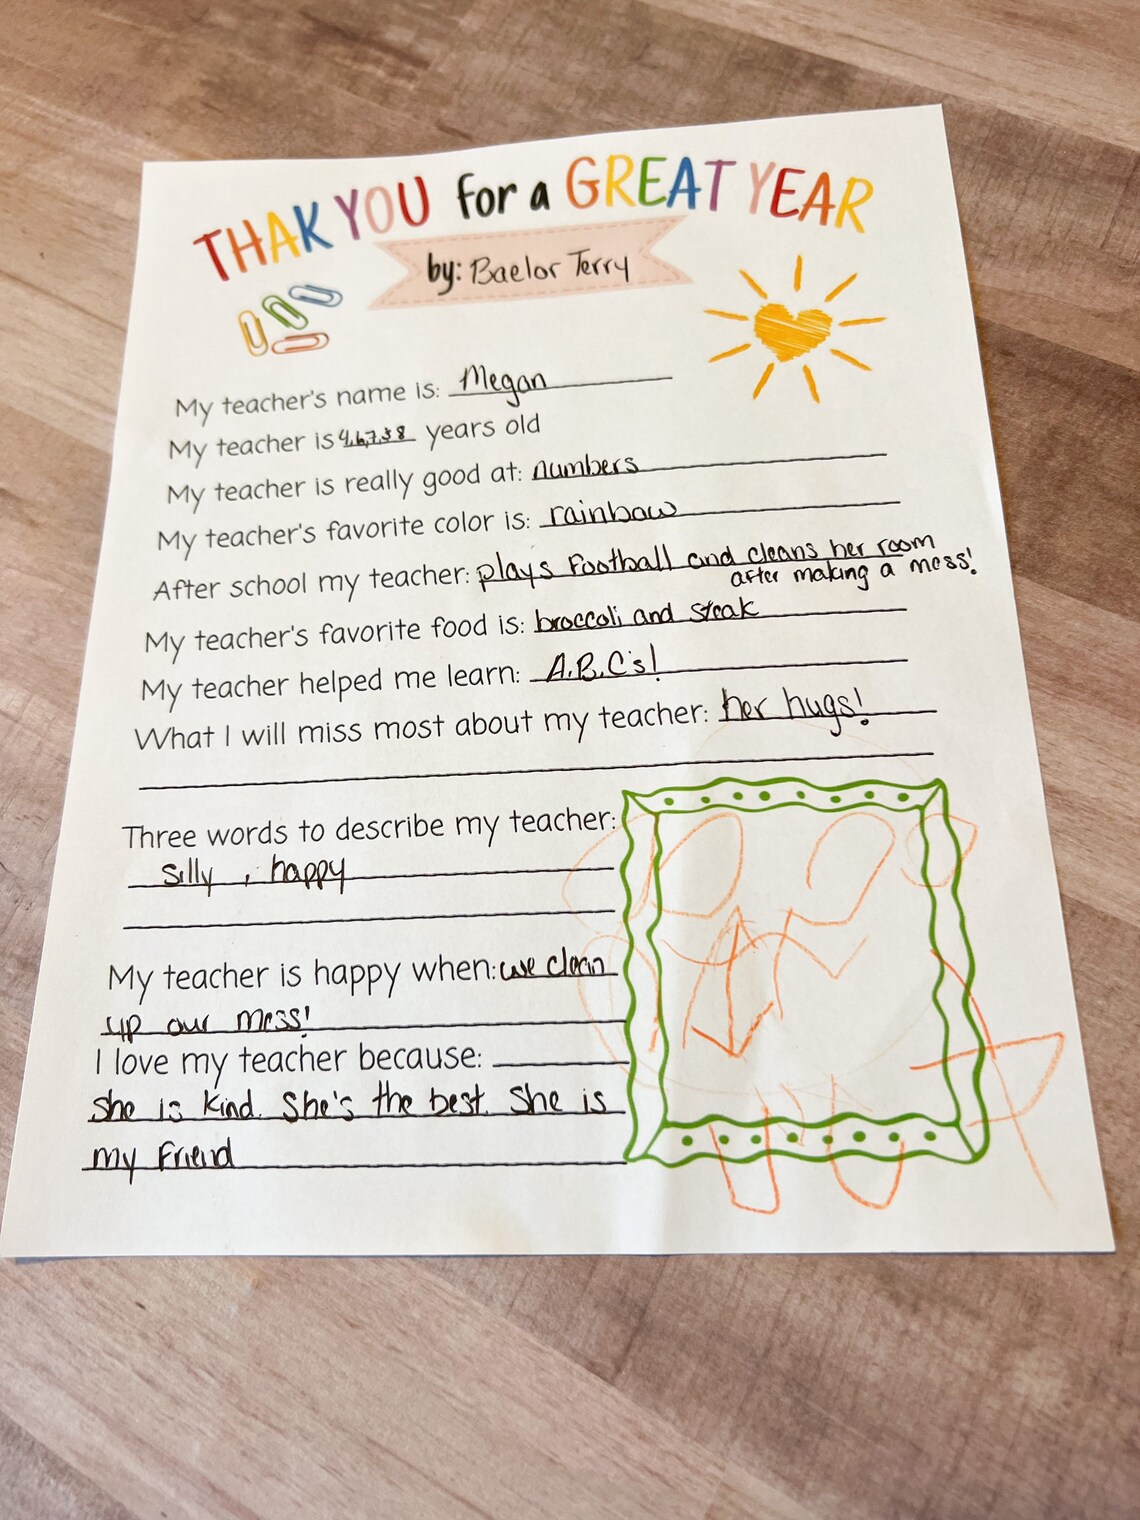 THAK YOU for a GREAT YEAR
by: Baelor Terry
My teacher's name is: Megan
My teacher is 4,6,7,38 years old
My teacher is really good at: numbers
My teacher's favorite color is: rainbow
After school my teacher: plays football and cleans her room
after making a mess!
My teacher's favorite food is: broccoli and steak
My teacher helped me learn: A.B.C's!
What I will miss most about my teacher: her hugs!
Three words to describe my teacher:
silly , happy
My teacher is happy when: we clean
up our mess!
I love my teacher because:
She is kind. She's the best. She is
my friend